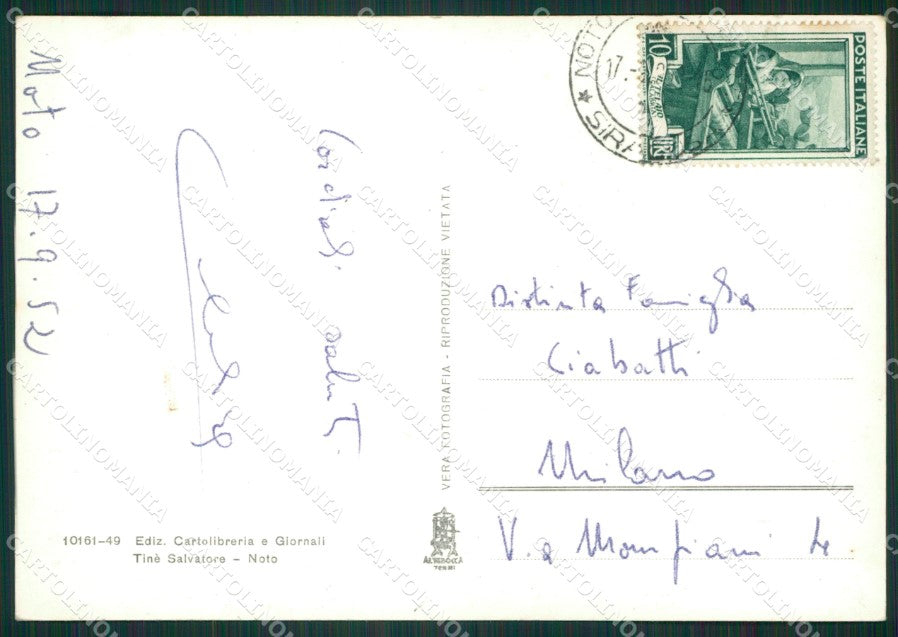 Noto 17.9.52
Cordiali saluti.
10161-49 Ediz. Cartolibreria e Giornali
Tinè Salvatore - Noto
VERA FOTOGRAFIA - RIPRODUZIONE VIETATA
ALTEROCCA
TERNI
NOTO
17.
SIRA
POSTE ITALIANE
10
LIRE
Distinta Famiglia
Ciabatti
Milano
Via Mompiani 4
CARTOLINOMANIA